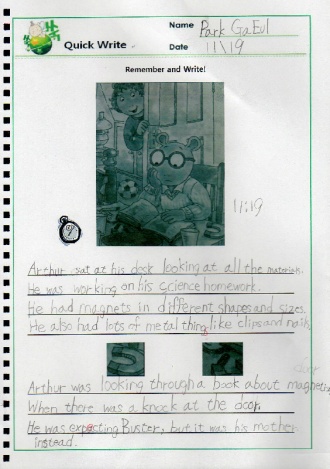 Name Park GaEul
Quick Write
Date 11\19
Remember and Write!
11:19
Arthur sat at his desk looking at all the materials.
He was working on his science homework.
He had magnets in different shapes and sizes.
He also had lots of metal thing like clips and nails
door
Arthur was looking through a book about magnets
When there was a knock at the door.
He was expecting Buster, but it was his mother
instead.